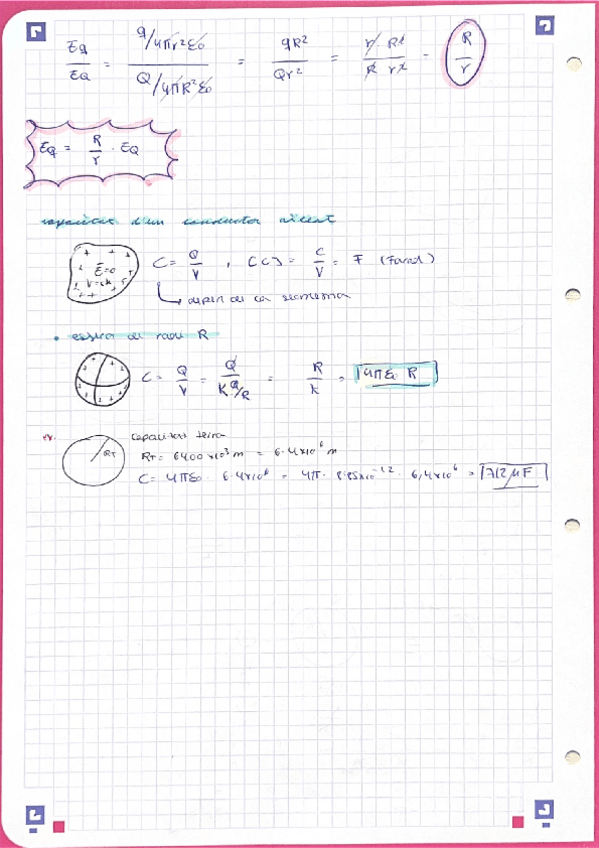 Eq/EQ = (q/4πr²ε0)/(Q/4πR²ε0) = qR²/Qr² = r R²/R r² = R/r
Eq = R/r · EQ
capacitat d'un conductor aïllat
E=0
C = Q/V , [C] = C/V = F (Farad)
depèn de la geometria
• esfera de radi R
C = Q/V = Q/(K Q/R) = R/k = 4πε0 R
ex. capacitat terra
RT
RT = 6400 x10³ m = 6.4x10⁶ m
C = 4πε0 · 6.4x10⁶ = 4π · 8.85x10⁻¹² · 6,4x10⁶ = 712 μF